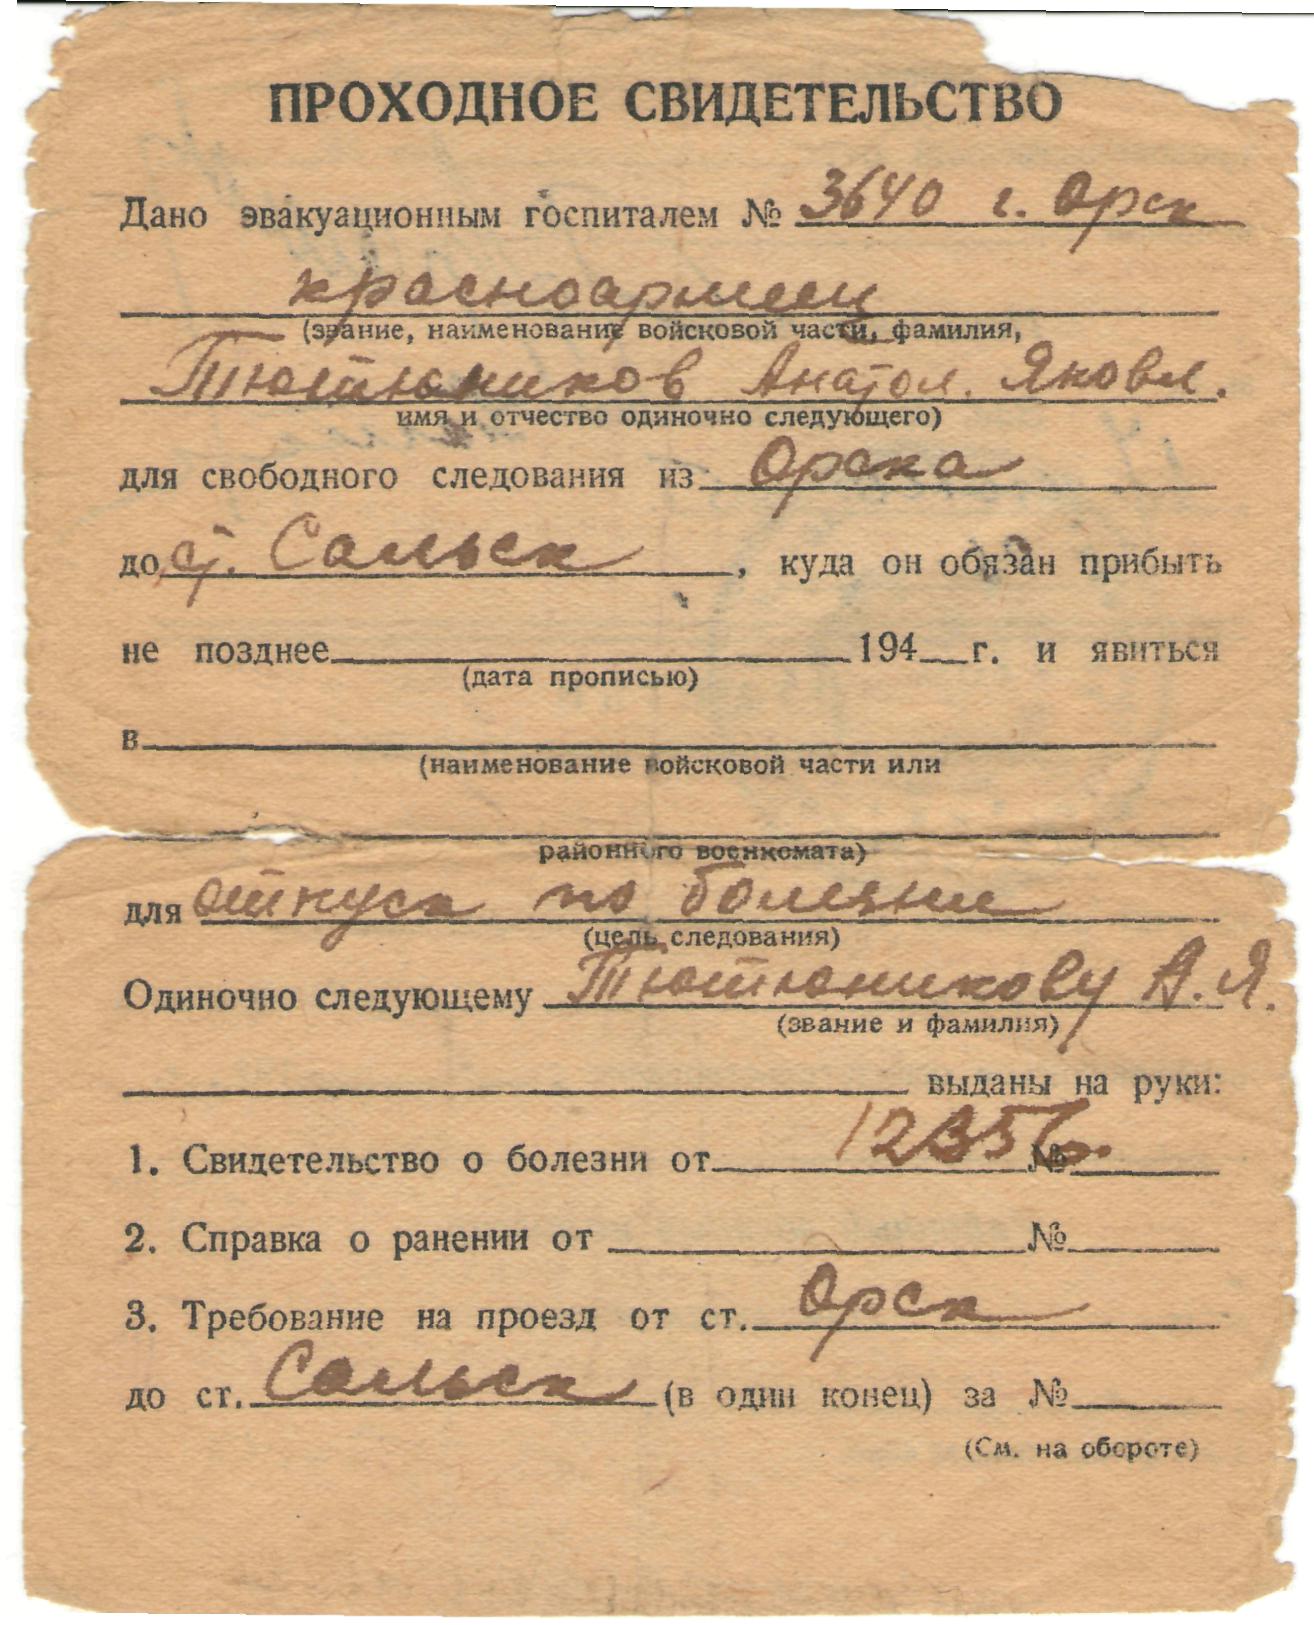 ПРОХОДНОЕ СВИДЕТЕЛЬСТВО
Дано эвакуационным госпиталем № 3640 г. Орск
красноармеец
(звание, наименование войсковой части, фамилия,
Тютюников Анатол. Яковл.
имя и отчество одиночно следующего)
для свободного следования из Орска
до ст. Сальск, куда он обязан прибыть
не позднее 194 г. и явиться
(дата прописью)
в
(наименование войсковой части или
районного военкомата)
для отпуск по болезни
(цель следования)
Одиночно следующему Тютюникову А. Я.
(звание и фамилия)
выданы на руки:
1. Свидетельство о болезни от №
2. Справка о ранении от №
3. Требование на проезд от ст. Орск
до ст. Сальск (в один конец) за №
(См. на обороте)